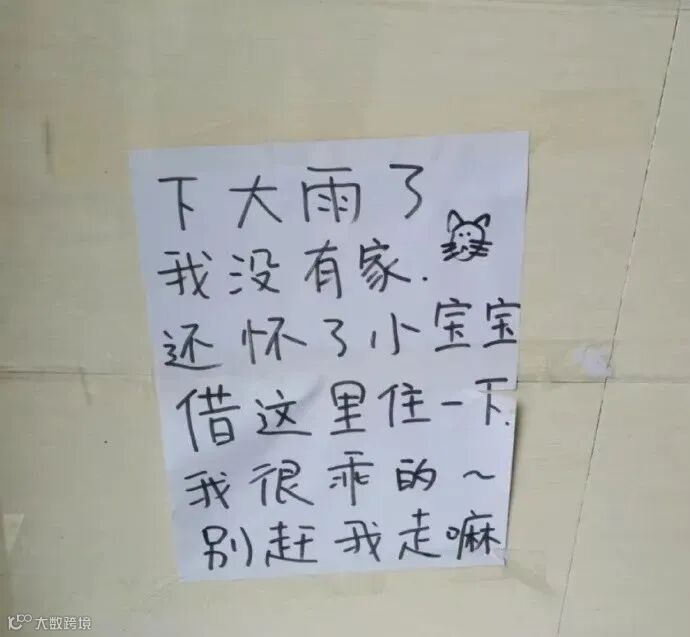 下大雨了
我没有家.
还怀了小宝宝
借这里住一下.
我很乖的~
别赶我走嘛
大数跨境